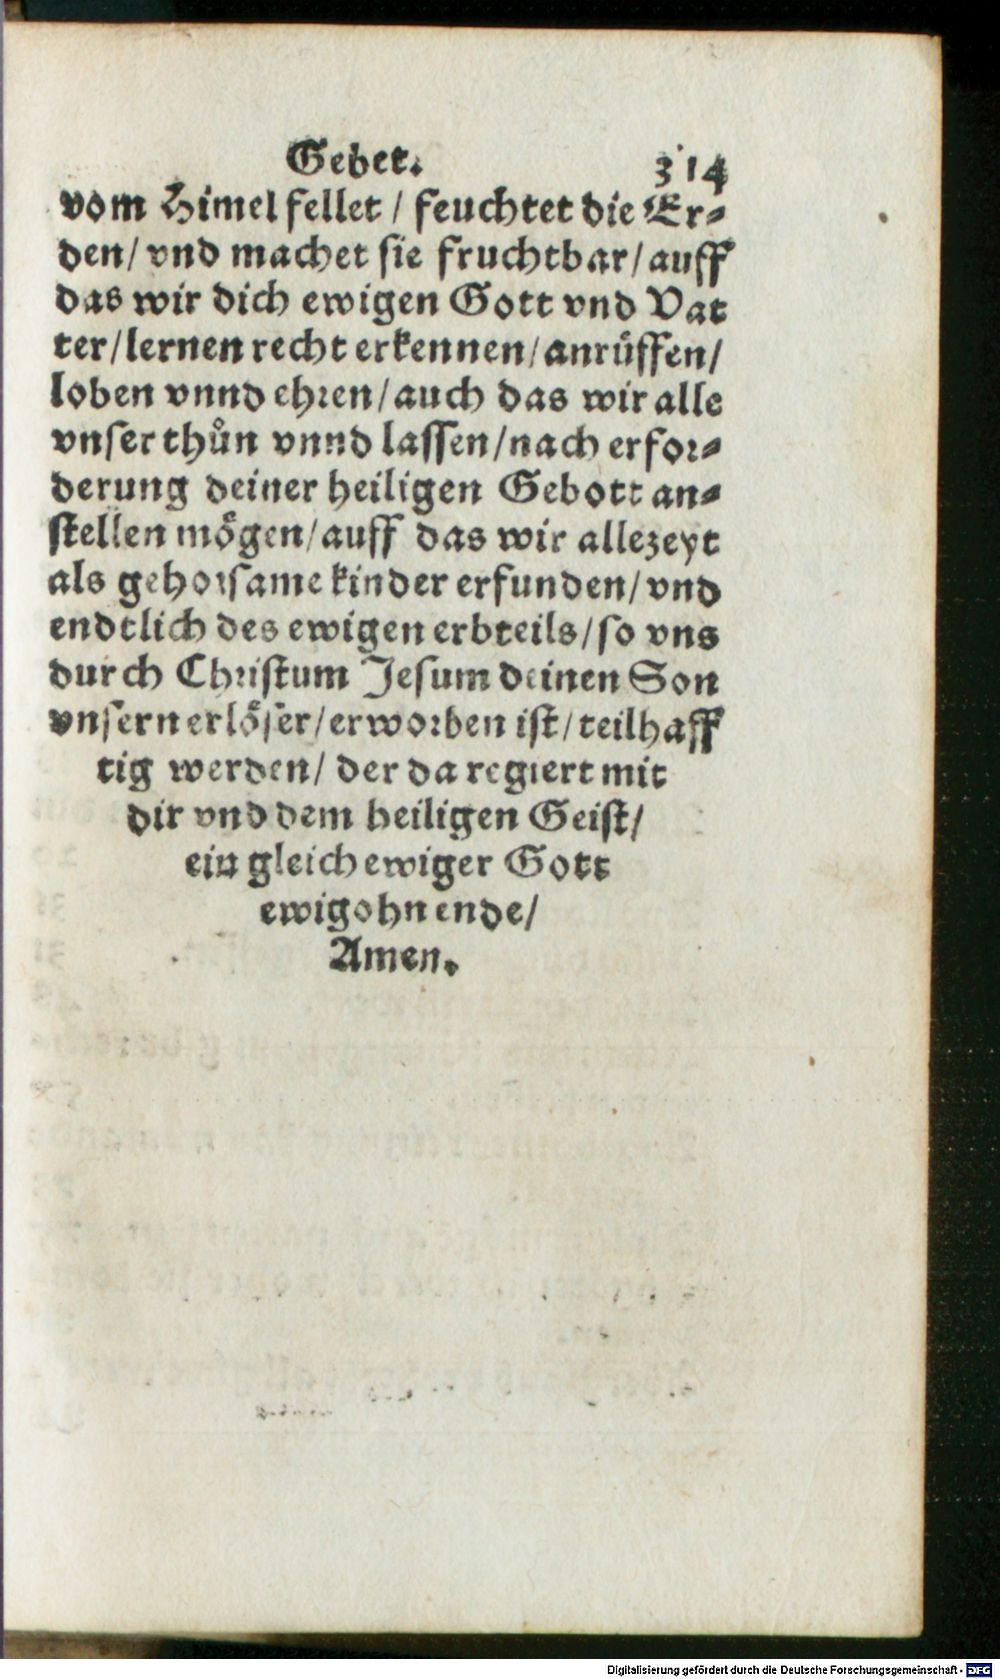 Gebet. 314
vom Himel fellet / feuchtet die Er-
den / vnd machet sie fruchtbar / auff
das wir dich ewigen Gott vnd Vat
ter / lernen recht erkennen / anrüffen /
loben vnnd ehren / auch das wir alle
vnser thůn vnnd lassen / nach erfor-
derung deiner heiligen Gebott an-
stellen mögen / auff das wir allezeyt
als gehorsame kinder erfunden / vnd
endtlich des ewigen erbteils / so vns
durch Christum Jesum deinen Son
vnsern erlöser / erworben ist / teilhaff
tig werden / der da regiert mit
dir vnd dem heiligen Geist /
ein gleich ewiger Gott
ewig ohn ende /
Amen.
Digitalisierung gefördert durch die Deutsche Forschungsgemeinschaft - DFG